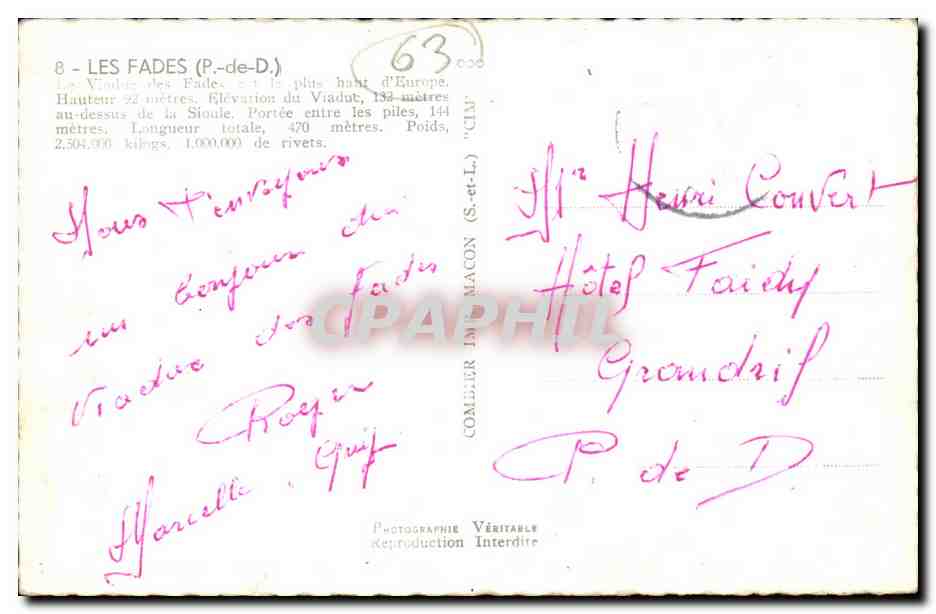 63
8 - LES FADES (P.-de-D.)
Le Viaduc des Fades est le plus haut d'Europe.
Hauteur 92 mètres. Elévation du Viaduc, 132 mètres
au-dessus de la Sioule. Portée entre les piles, 144
mètres. Longueur totale, 470 mètres. Poids,
2.504.000 kilogs. 1.000.000 de rivets.
Nous t'envoyons
un bonjour du
Viaduc des Fades
Roger
Marcelle, Guif
COMBIER IMP. MACON (S.-et-L.) "CIM"
Mr Henri Convert
Hôtel Faidy
Grandrif
P. de D.
CPAPHIL
PHOTOGRAPHIE VÉRITABLE
Reproduction Interdite